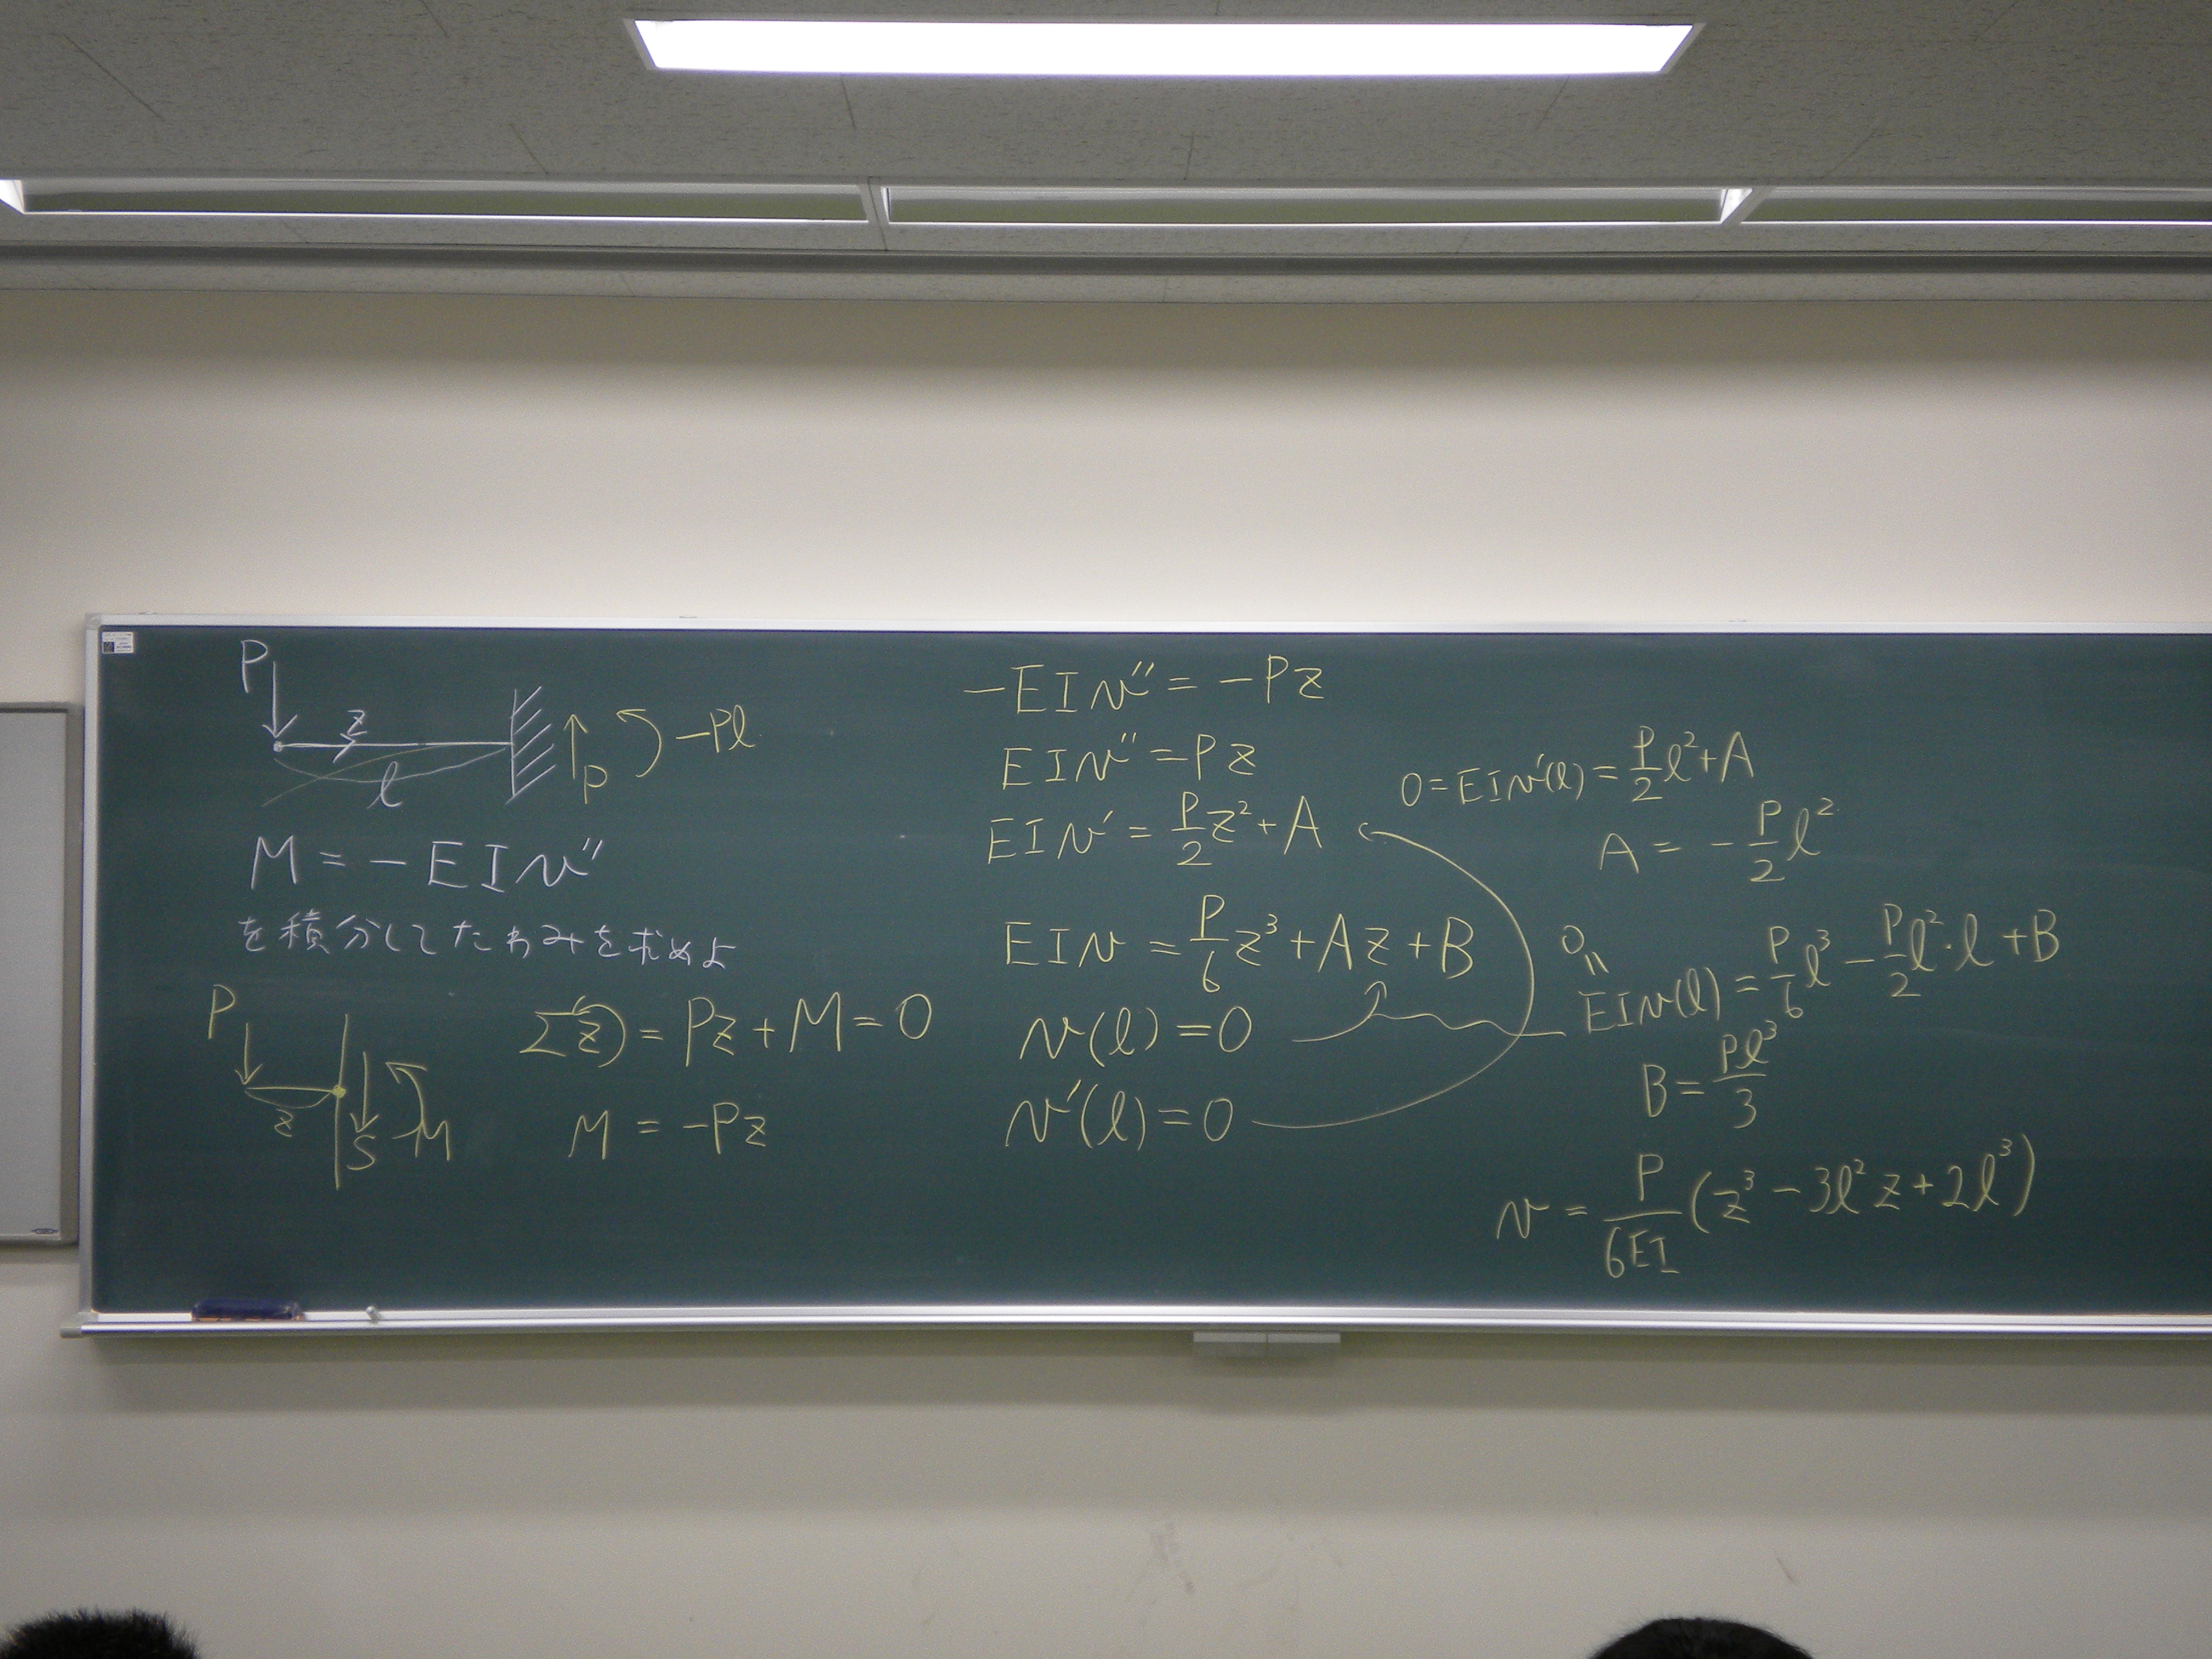 P
z
l
P
-Pl
M = -EIv''
を積分してたわみを求めよ
P
z
S
M
Σz = Pz + M = 0
M = -Pz
-EIv'' = -Pz
EIv'' = Pz
EIv' = P/2 z² + A
EIv = P/6 z³ + Az + B
v(l) = 0
v'(l) = 0
0 = EIv'(l) = P/2 l² + A
A = -P/2 l²
0 = EIv(l) = P/6 l³ - P/2 l²・l + B
B = Pl³/3
v = P/6EI (z³ - 3l²z + 2l³)